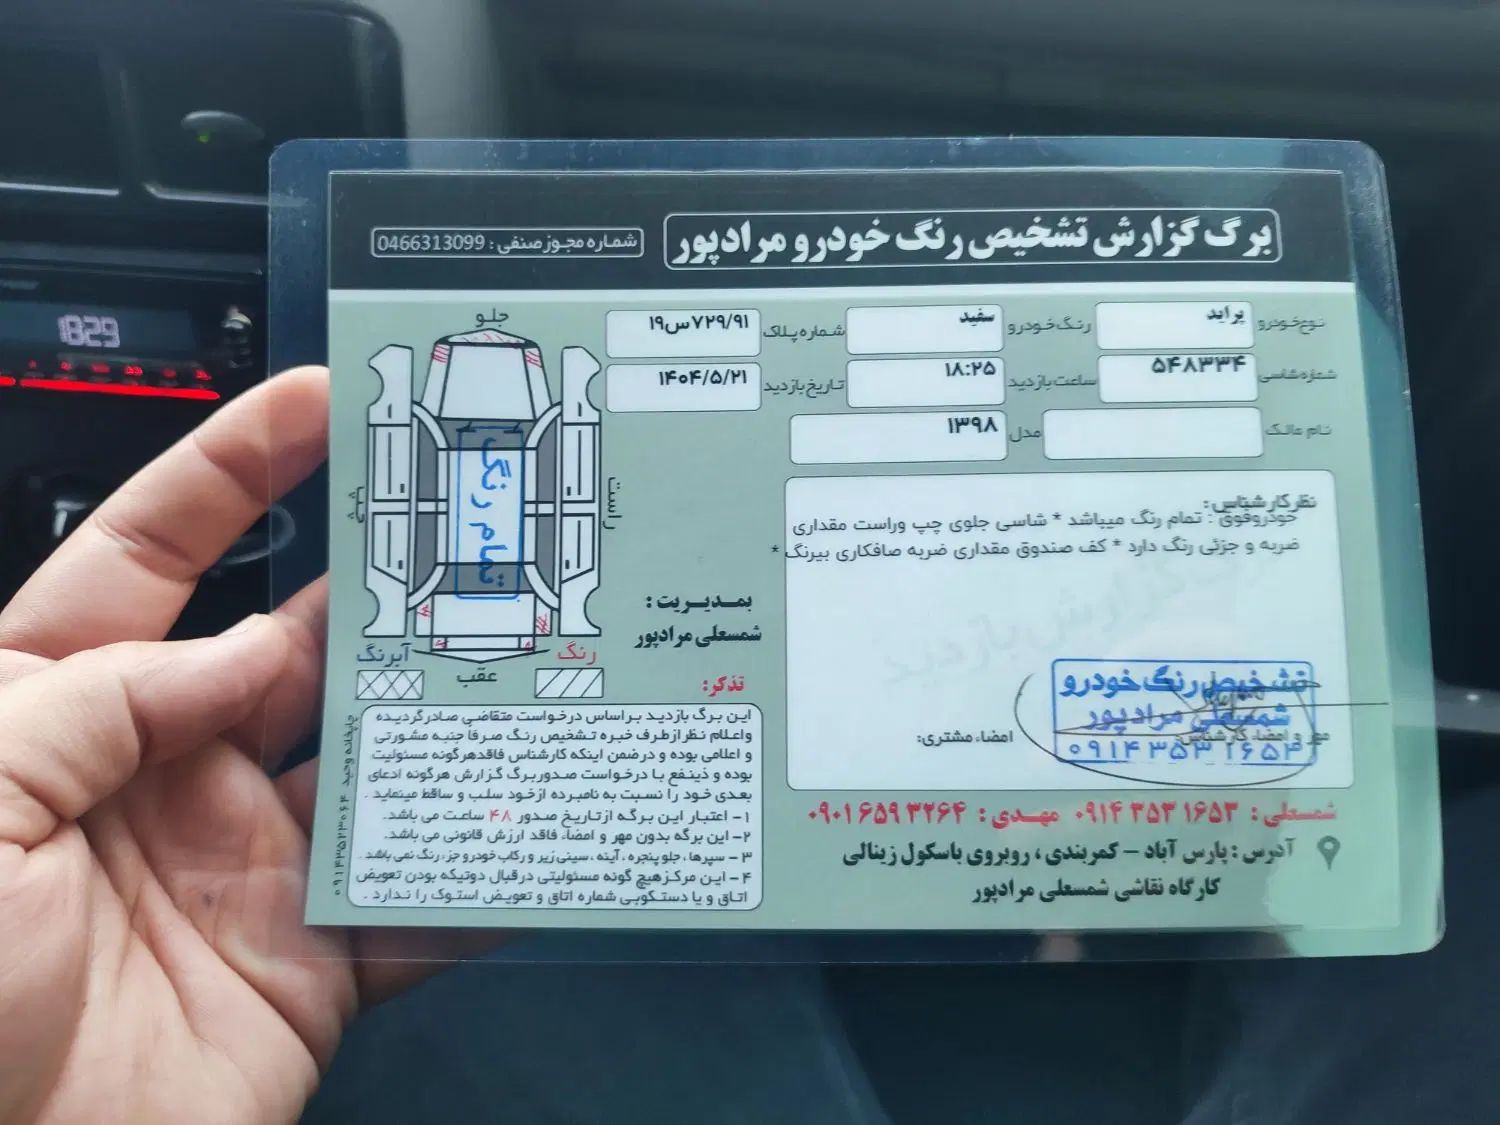 برگ گزارش تشخیص رنگ خودرو مرادپور
شماره مجوز صنفی : 0466313099
نوع خودرو پراید
رنگ خودرو سفید
شماره پلاک ۷۲۹/۹۱س۱۹
شماره شاسی ۵۴۸۳۳۴
ساعت بازدید ۱۸:۲۵
تاریخ بازدید ۱۴۰۴/۵/۲۱
نام مالک
مدل ۱۳۹۸
نظر کارشناس :
خودروفوق : تمام رنگ میباشد * شاسی جلوی چپ وراست مقداری
ضربه و جزئی رنگ دارد * کف صندوق مقداری ضربه صافکاری بیرنگ *
گزارش بازدید
تشخیص رنگ خودرو
شمسعلی مرادپور
۰۹۱۴ ۳۵۳ ۱۶۵۳
مهر و امضاء کارشناس:
امضاء مشتری:
جلو
راست
چپ
تمام رنگ
عقب
رنگ
آبرنگ
بمدیریت :
شمسعلی مرادپور
تذکر:
این برگ بازدید براساس درخواست متقاضی صادر گردیده
و اعلام نظر از طرف خبره تشخیص رنگ صرفا جنبه مشورتی
و اعلامی بوده و درضمن اینکه کارشناس فاقد هرگونه مسئولیت
بوده و ذینفع با درخواست صدور برگ گزارش هرگونه ادعای
بعدی خود را نسبت به نامبرده از خود سلب و ساقط مینماید .
۱- اعتبار این برگه از تاریخ صدور ۴۸ ساعت می باشد.
۲- این برگه بدون مهر و امضاء فاقد ارزش قانونی می باشد.
۳ - سپرها ، جلو پنجره ، آینه ، سینی زیر و رکاب خودرو جزء رنگ نمی باشد .
۴ - این مرکز هیچ گونه مسئولیتی در قبال دوتیکه بودن تعویض
اتاق و یا دستکوبی شماره اتاق و تعویض استوک را ندارد .
چاپخانه وحید ۰۹۱۴۳۵۲۳۰۶۴
شمسعلی : ۰۹۱۴ ۳۵۳ ۱۶۵۳ مهدی : ۰۹۰۱ ۶۵۹ ۳۲۶۴
آدرس : پارس آباد – کمربندی ، روبروی باسکول زینالی
کارگاه نقاشی شمسعلی مرادپور
1829